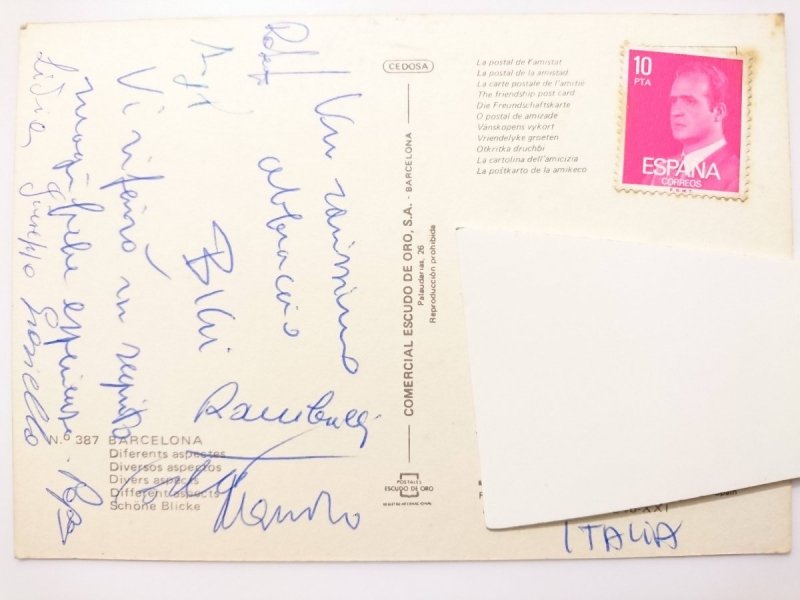 CEDOSA
La postal de l'amistat
La postal de la amistad
La carte postale de l'amitié
The friendship post card
Die Freundschaftskarte
O postal de amizade
Vänskopens vykort
Vriendelyke groeten
Otkritka druchbi
La cartolina dell'amicizia
La poŝtkarto de la amikeco
10
PTA
ESPAÑA
CORREOS
F.N.M.T.
COMERCIAL ESCUDO DE ORO, S.A. - BARCELONA
Palaudarias, 26
Reproducción prohibida
Un carissimo
abbraccio
Vi riferirò in seguito
esperienze
Lidia
Giuseppe Graziella
N.º 387 BARCELONA
Diferents aspectes
Diversos aspectos
Divers aspects
Different aspects
Schöne Blicke
POSTALES
ESCUDO DE ORO
-XXI
ITALIA